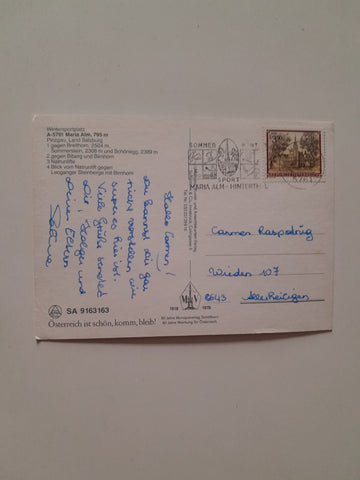 Wintersportplatz
A-5761 Maria Alm, 795 m
Pinzgau, Land Salzburg
1 gegen Breithorn, 2504 m,
Sommerstein, 2308 m und Schöneg, 2389 m
2 gegen Biberg und Birnhorn
3 Naturrunlifte
4 Blick vom Natrunlift gegen
Leoganger Steinberge mit Birnhorn
Hallo Carmen!
Du kannst dir gar
nicht vorstellen wie
super es hier ist.
Viele Grüße sendet
Dir, Holger und
Deine Eltern
SOMMER
SPORT
MARIA ALM - HINTERTHAL
5761
Carmen Raspotnig
Wieden 107
8643 Allerheiligen
SA 9163163
Österreich ist schön, komm, bleib!
1918 1978
60 Jahre Werbung für Österreich.